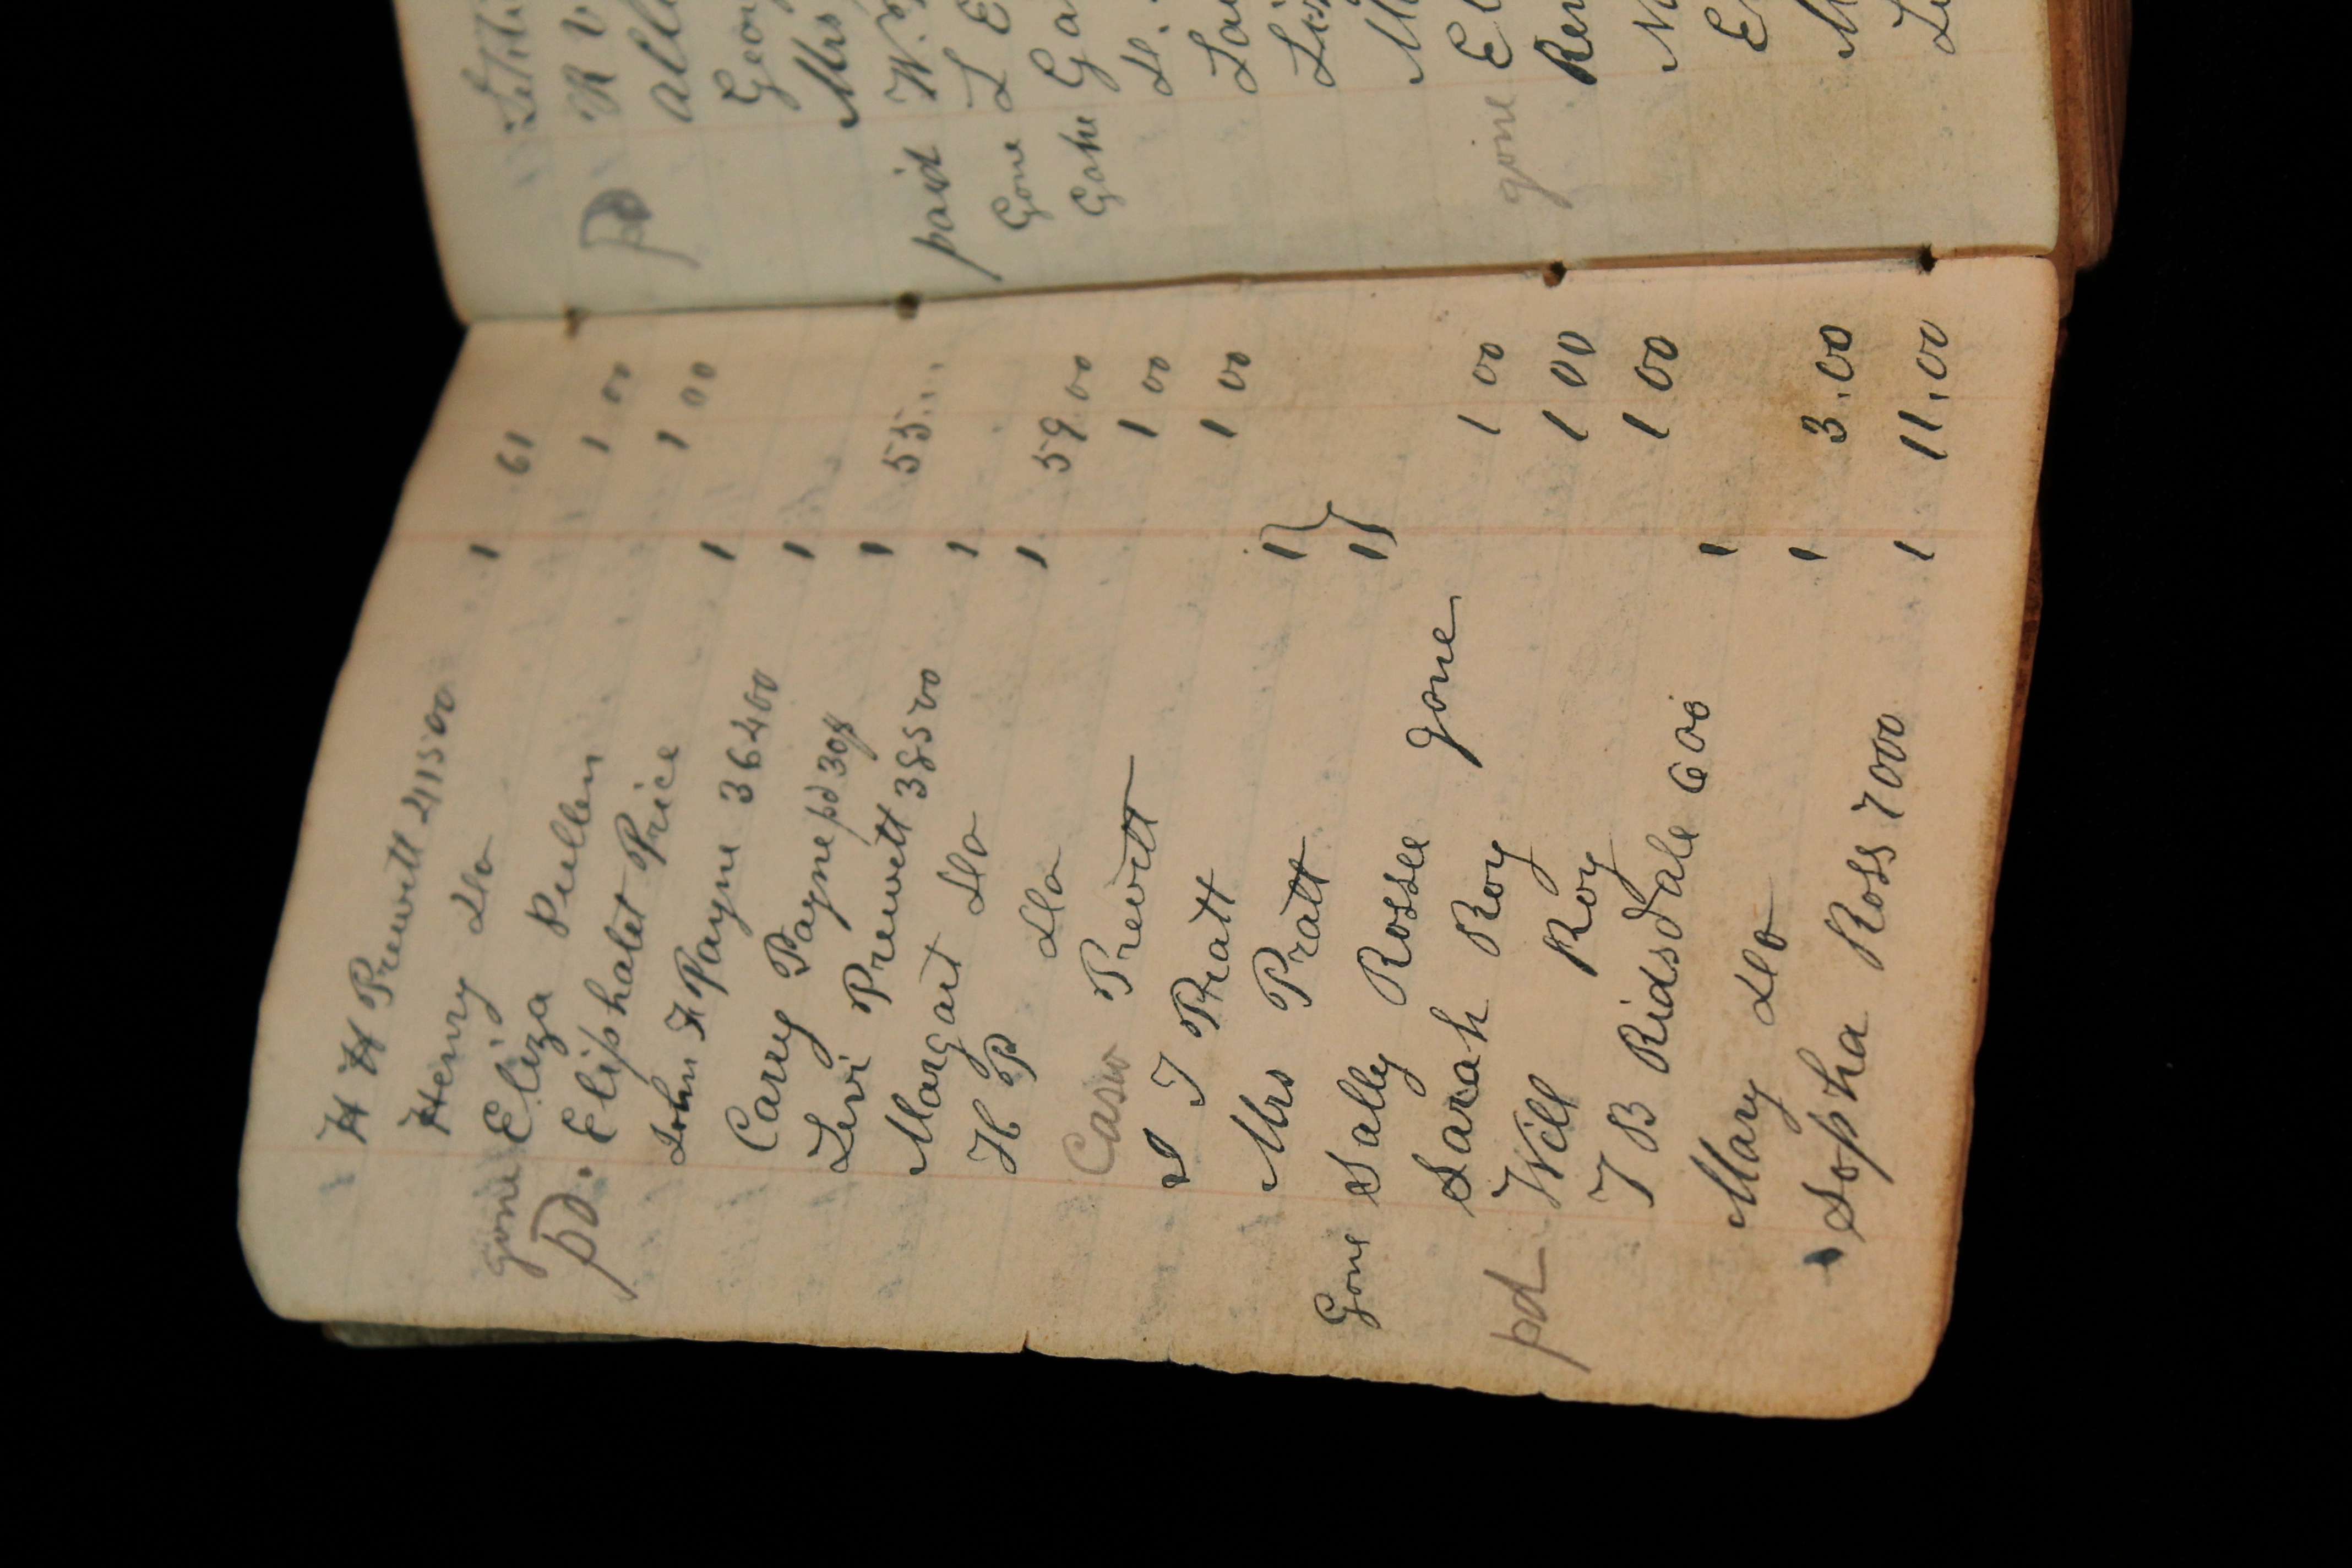 H H Prewitt 411500 1 61
Henry Do 1 00
gone Eliza Pullen 1 00
pd. Eliphalet Price 1
John F Payne 36400 1
Carry Payne pd 30¢ 1 55...
Levi Prewett 38500 1
Margart Do 1 59 00
H P Do 1 00
Previtt 1 00
I T Pratt 1
Mrs Pratt 1
Gone Sally Rossee gone 1 00
Sarah Roy 1 00
pd Will Roy 1 00
T B Ridsdale 600 1
Mary Do 1 3.00
Sopha Ross 7000 1 11.00
pd R
Geor
Mrs
paid W.
Gone L E
Gone Ga
Mrs
gone El